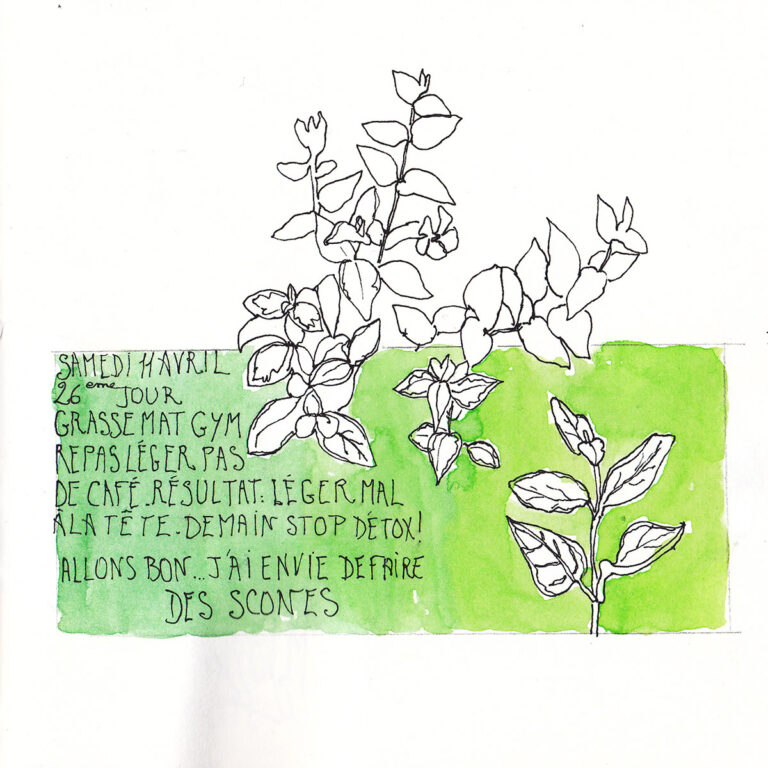 SAMEDI 11 AVRIL
26eme JOUR
GRASSE MAT GYM
REPAS LÉGER PAS
DE CAFÉ. RÉSULTAT: LÉGER MAL
À LA TÊTE. DEMAIN STOP DÉTOX!
ALLONS BON... J'AI ENVIE DE FAIRE
DES SCONES